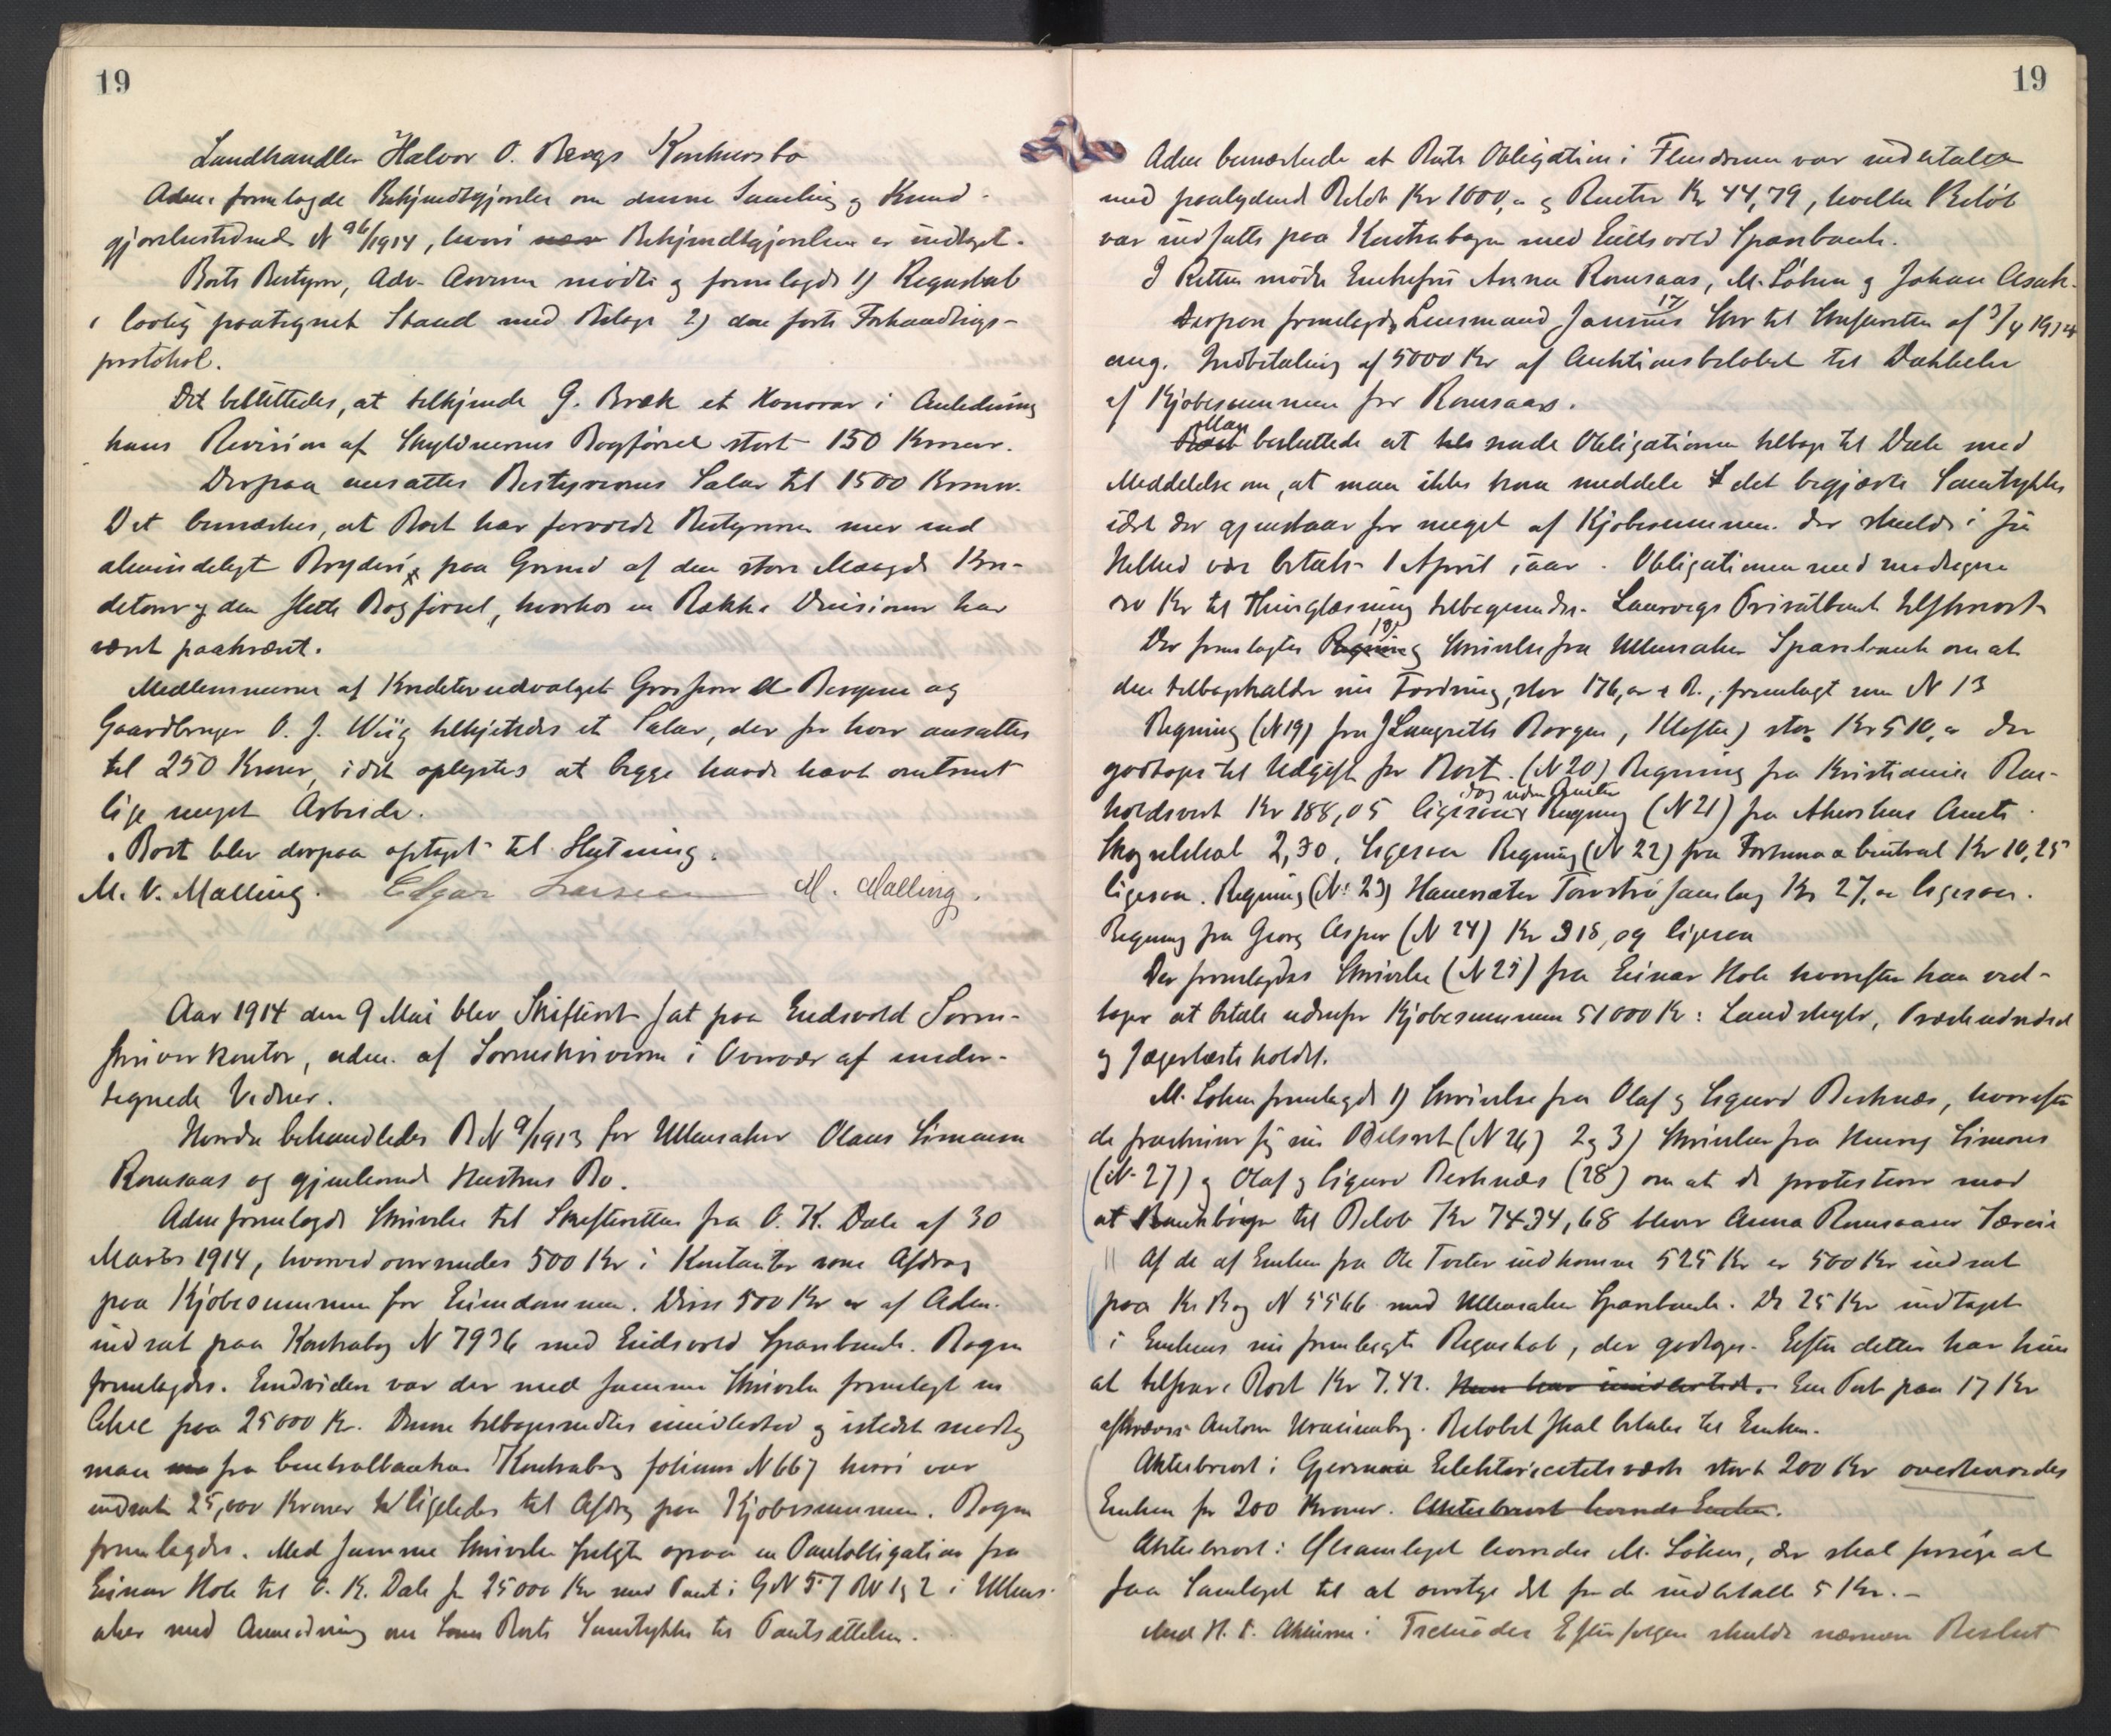 19
Landhandler Halvor O. Bergs Konkursbo
Adm. fremlagde Bekjendtgjørelse om denne Samling og Kund-
gjørelsestidende N 96/1914, hvori Bekjendtgjørelsen er indtaget.
Boets Bestyrer, Adv. mødte og fremlagde 1) Regnskab
i lovlig paategnet Stand med Bilage 2) den førte Forhandlings-
protokol.
Det besluttedes, at tilkjende G. Bræk et Honorar i Anledning
hans Revision af Skyldnerens Bogførsel stort 150 Kroner.
Derpaa ansattes Bestyrerens Salær til 1500 Kroner.
Det bemærkes, at Boet har forvoldt Bestyreren mer end
almindeligt Bryderi, paa Grund af den store Mængde Kre-
ditorer og den slette Bogførsel, hvorhos en Række Decisioner har
været paakrævet.
Medlemmerne af Kreditorudvalget Grosserer Borgen og
Gaardbruger O. J. Wiig tilkjendes et Salær, der for hver ansattes
til 250 Kroner, idet oplystes at begge havde havt omtrent
lige meget Arbeide.
Boet blev derpaa optaget til Slutning.
M. V. Malling. Edgar Larsen M. Malling.
Aar 1914 den 9 Mai blev Skifteret sat paa Eidsvold Soren-
skriverkontor, adm. af Sorenskriveren i Overvær af under-
tegnede Vidner.
Hvorda behandledes B N 9/1913 for Ullensaker Olaus Simonsen
Romsaas og gjenlevende Hustrus Bo.
Adm fremlagde Skrivelse til Skifteretten fra O. K. Dale af 30
Marts 1914, hvorved oversendes 500 Kr i Kontanter som Afdrag
paa Kjøbesummen for Eiendommen. Disse 500 Kr er af Adm.
indsat paa Kontrabog N 7936 med Eidsvold Sparebank. Bogen
fremlagdes. Endvidere var der med samme Skrivelse fremlagt en
Chec paa 25000 Kr. Denne tilbagesendtes imidlertid og istedet modtog
man fra Centralbanken Kontrabog folium N 667 hvori var
indsat 25,000 Kroner ligeledes til Afdrag paa Kjøbesummen. Bogen
fremlagdes. Med samme Skrivelse fulgte ogsaa en Pantobligation fra
Einar Hole til O. K. Dale for 25000 Kr med Pant i G N 57 BN 1 og 2 i Ullens-
aker med Anmodning om Boets Samtykke til Pantsættelsen.
19
Adm bemærkede at Boets Obligation i var indbetalt
med paalydende Beløb Kr 1000,- og Renter Kr 44,79, hvilke Beløb
var indsatte paa Kontrabogen med Eidsvold Sparebank.
I Retten mødte Enkefru Anna Romsaas, M. Løken og Johan Asak.
Derpaa fremlagdes Lensmand 17) Skr til Skifteretten af 3/4 1914
ang. Indbetaling af 5000 Kr af Auktionsbeløbet til Dækkelse
af Kjøbesummen for Romsaas.
Man besluttede at sende Obligationen tilbage til Dale med
Meddelelse om, at man ikke kan meddele det begjærte Samtykke
idet der gjenstaar for meget af Kjøbesummen. der skulde i sin
Helhed være betalt 1 April iaar. Obligationen med medlagte
Kr til Thinglæsning tilbagesendes. Laurvigs Privatbank tilskrives
Der fremlagtes 18) Skrivelse fra Ullensaker Sparebank om at
den tilbagekalder sin Fordring, stor 176, fremlagt som N 13
Regning (N 19) fra J Langseths Borgen, Kløften) stor Kr 510,- der
godtages til Udgift for Boet. (N 20) Regning fra Kristiania Bru-
holdsvert Kr 188,05 ligesaa dog uden Renter Regning (N 21) fra Akershus Amts
Skogselskab 2,30, ligesaa Regning (N 22) fra Fortuna Central Kr 10,25
ligesaa. Regning (N 23) Hauersæter Torvstrøsamlag Kr 27,- ligesaa.
Regning fra Georg Asper (N 24) Kr 318,09 ligesaa
Der fremlagdes Skrivelse (N 25) fra Einar Hole hvorefter han ved-
tager at betale udenfor Kjøbesummen 51000 Kr: Landskyld,
og Jægerhesteholdet.
M. Løken fremlagde 1) Skrivelse fra Olaf og Sigurd Berknæs, hvorefter
de fraskriver sig sin (N 26) 2 og 3) Skrivelser fra Simons
(N 27) og Olaf og Sigurd Berknæs (28) om at de protesterer mod
at Bankbøger til Beløb Kr 7434,68 bliver Anna Romsaasens Særeie
Af de af Enken fra Ole indkomne 525 Kr er 500 Kr indsat
paa Kr Bog N 5566 med Ullensaker Sparebank. De 25 Kr indtaget
i Enkens nu fremlagte Regnskab, der godtages. Efter dette har hun
at tilsvare Boet Kr 7.42. Hun har imidlertid. En Post paa 17 Kr
afkræves Anton. Beløbet skal betales til Enken.
Aktiebrevet i Gjermaa Elektricitetsværk stort 200 Kr overlevertes
Enken for 200 Kroner. Aktiebrevet havde Enken.
Aktiebrevet i havdes M. Løken, der skal forsøge at
faa Samlaget til at overtage det for de indbetalte 5 Kr. -
Med H. T. Aktierne i Efterfølger skulde nærmere Beslut